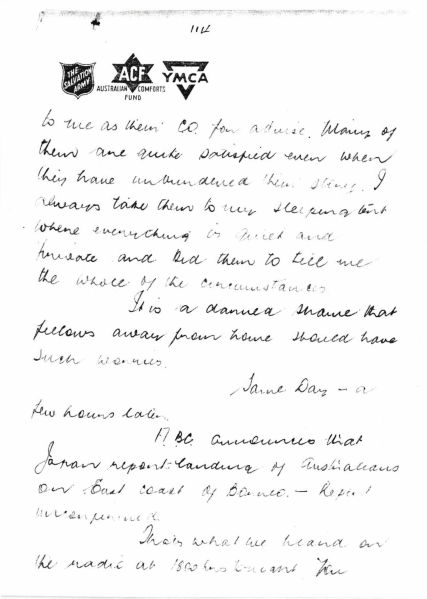 114
THE SALVATION ARMY
ACF
AUSTRALIAN COMFORTS FUND
YMCA
to me as their CO for advise. Many of
them are quite satisfied even when
they have unburdened their story. I
always take them to my sleeping tent
where everything is quiet and
private and bid them to tell me
the whole of the circumstances
It is a damned shame that
fellows away from home should have
such worries.
Same Day – a
few hours later.
A.B.C. announces that
Japan report landing of Australians
on East coast of Borneo. – Report
unconfirmed.
That's what we heard on
the radio at 1800 hrs tonight. You